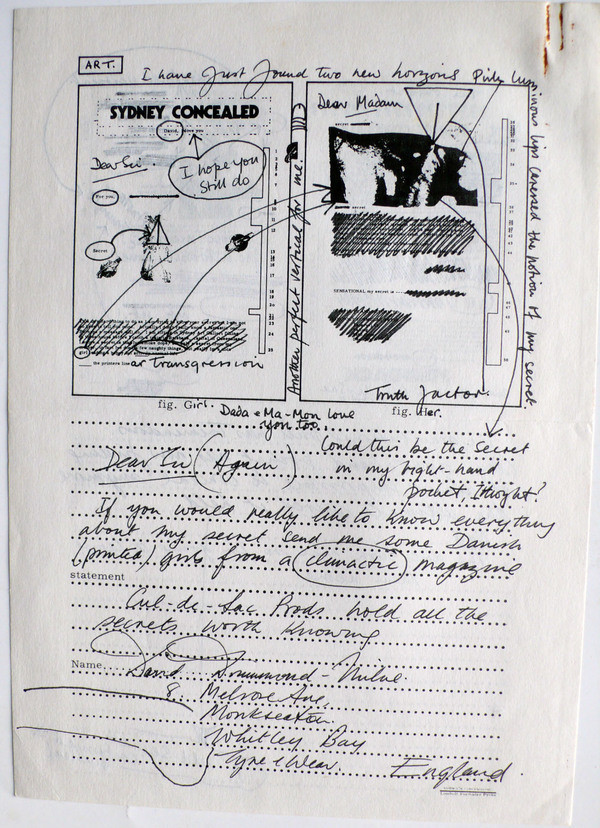 ART.
I have Just Found two new horizons Pink Luminous lips caressed the notion of my secret.
SYDNEY CONCEALED
David, since you
Dear Sir
I hope you
Still do
For you,
Secret
girl
few naughty things
the printers line or Transgression
fig. Girl.
Another perfect vertical for me.
Dear Madam
secret
secret
SENSATIONAL, my secret is
Truth Factor.
fig. Her.
Dada & Ma-Mon love
you too.
Dear Sir (Again)
Could this be the Secret
in my right-hand
pocket, I thought?
If you would really like to know everything
about my secret send me some Danish
(printed) girls from a climactic magazine
statement
Cul-de-Sac Prods hold all the
secrets worth knowing
Name David Drummond-Milne
8 Melrose Ave,
Monkseaton
Whitley Bay
Tyne & Wear.
England